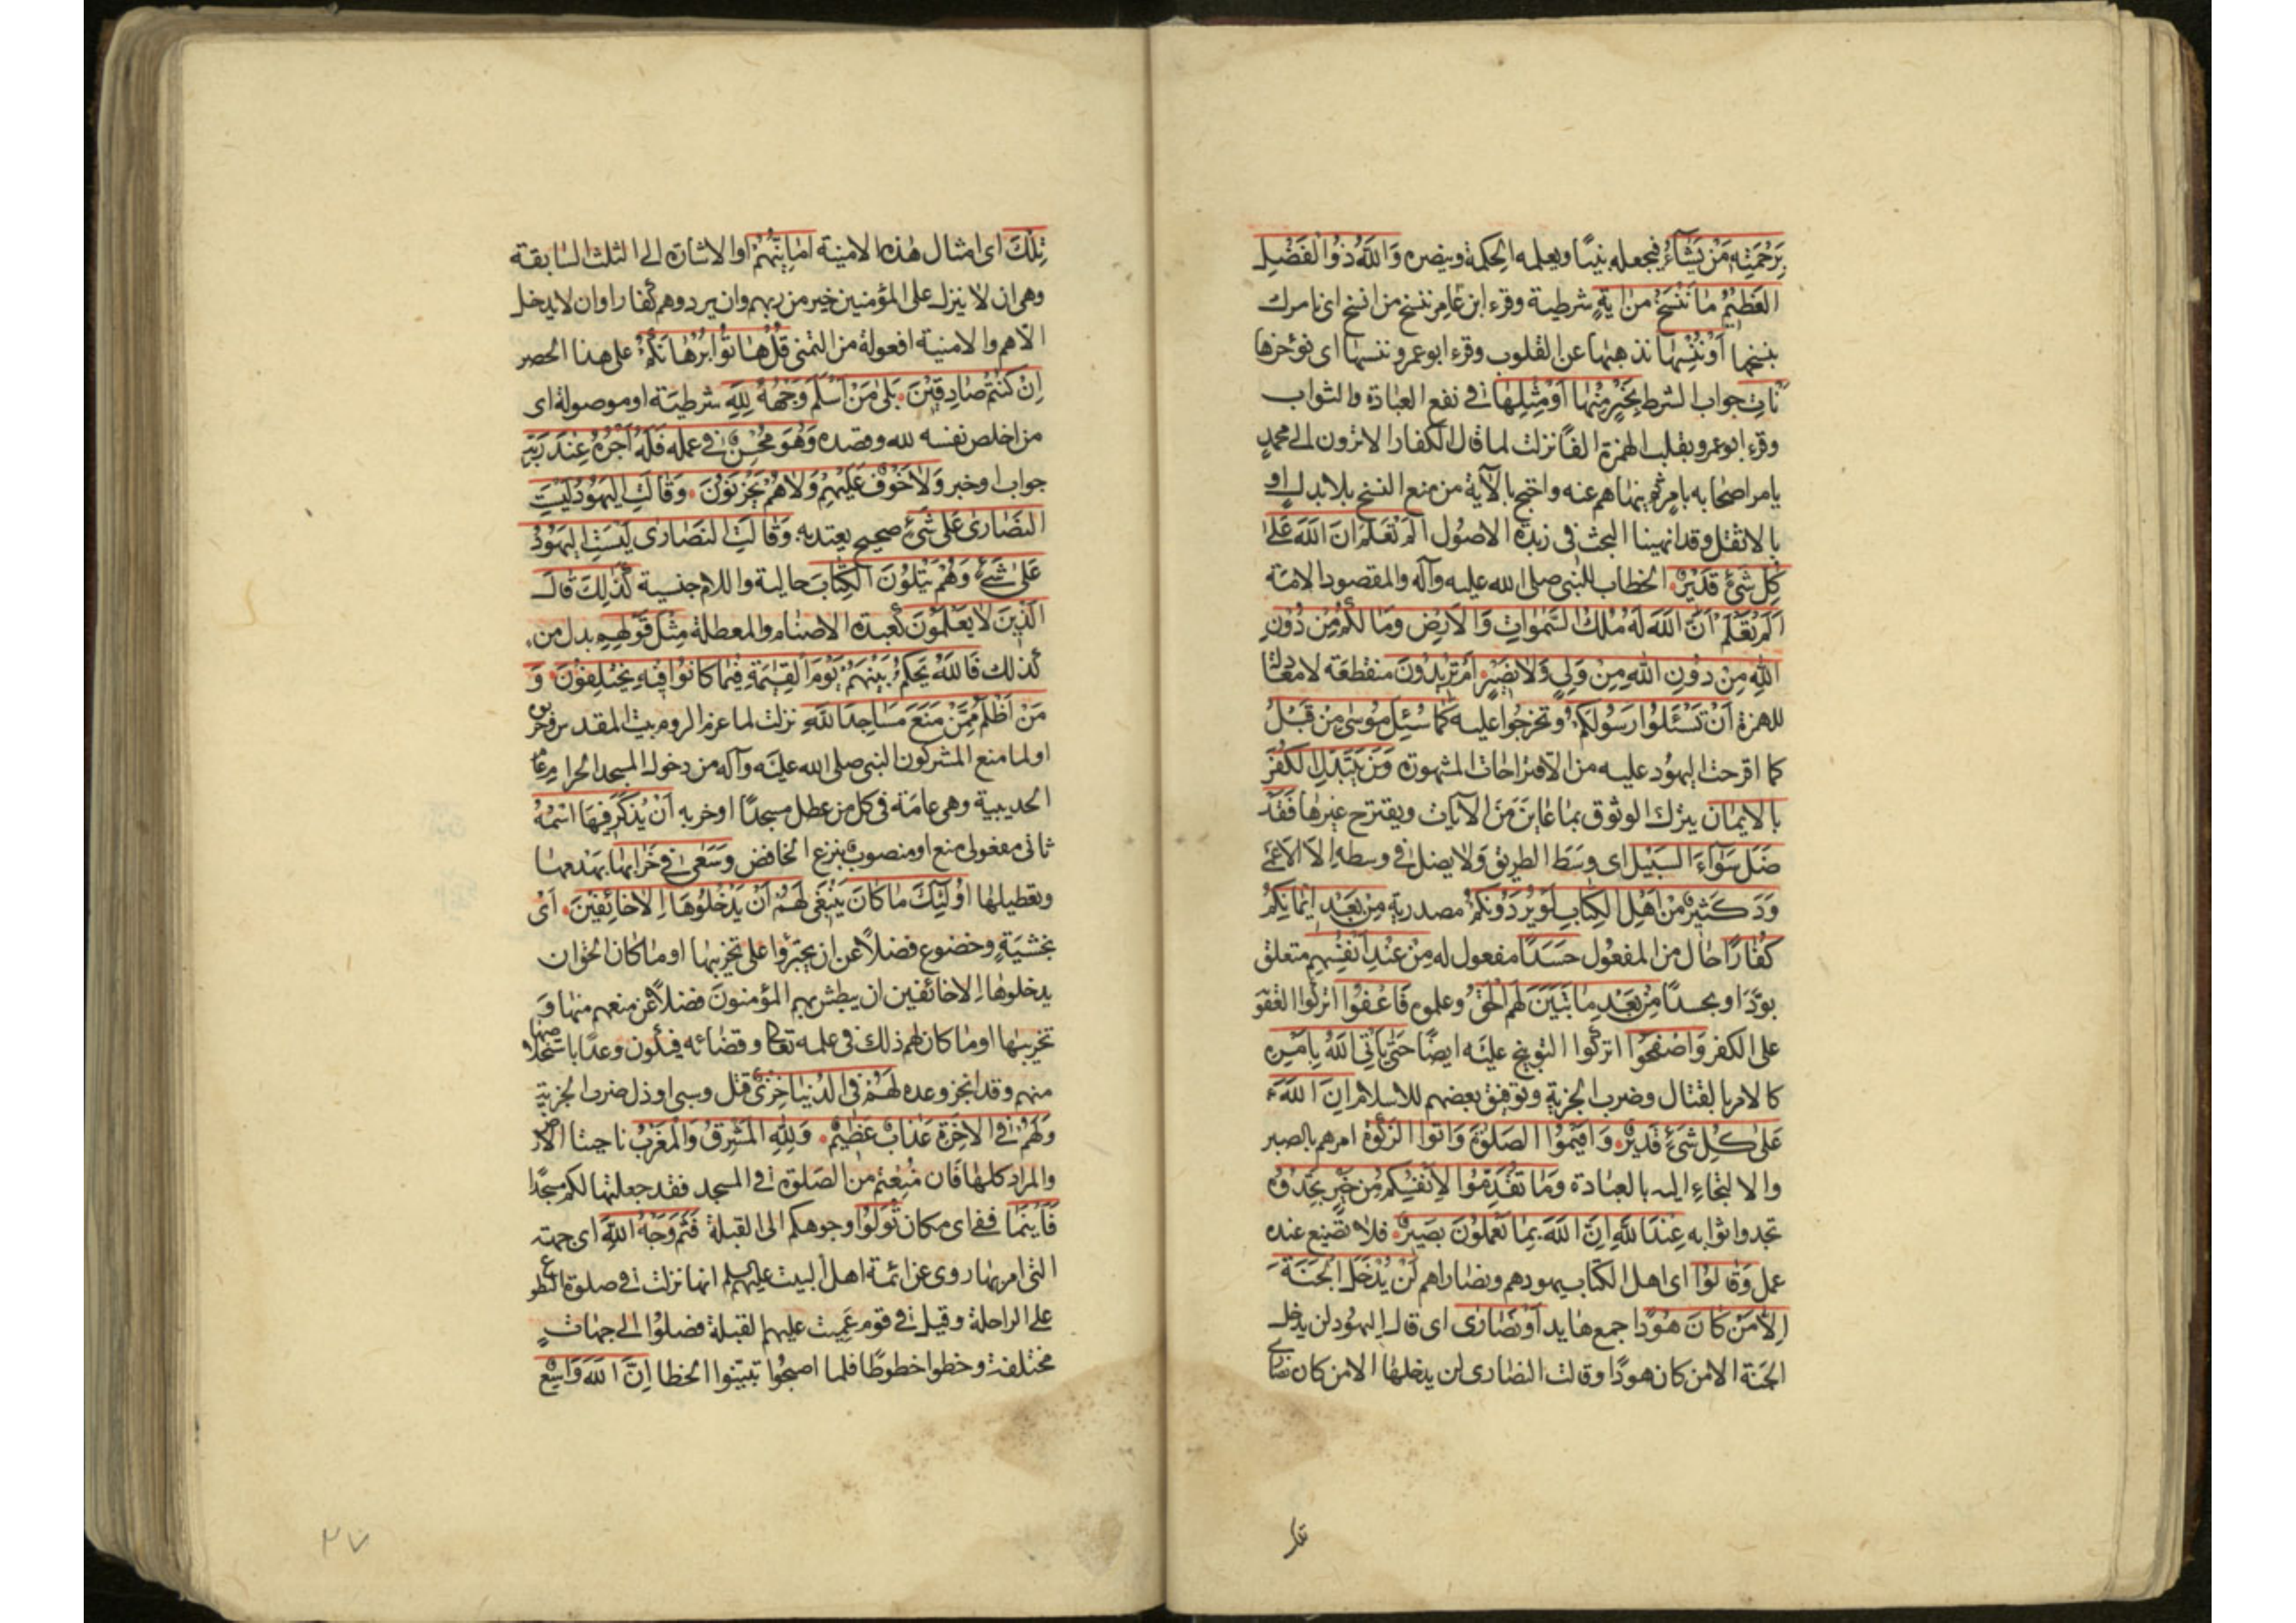 بِرَحْمَتِهِ مَنْ يَشَآءُ فيجعله نبيًّا ويعلمه الحكمة وينصره وَاللهُ ذُوا الْفَضْلِ
الْعَظِيْمِ مَا نَنْسَخْ مِنْ ايَةٍ شرطية وقرء ابن عامر ننسخ من انسخ اى نامرك
بنسخها اَوْ نُنْسِهَا نذهبها عن القلوب وقرء ابو عمرو ننسها اى نؤخرها
نَاْتِ جواب الشرط بِخَيْرٍ مِنْهَا اَوْ مِثْلِهَا فى نفع العبادة والثواب
وقرء ابو عمرو بقلب الهمزة الفًا نزلت لما قال الكفار الا ترون الى محمدٍ
يامر اصحابه بامرٍ ثم ينهاهم عنه واحتج بالآية من منع النسخ بلا بدل او
بالاثقل وقد انهينا البحث فى زبدة الاصُول اَلَمْ تَعْلَمْ اَنَّ اللهَ عَلىٰ
كُلِّ شَئٍ قَدِيْرٌ الخطاب للنبى صلى الله عليه وآله والمقصود الامّة
اَلَمْ تَعْلَمْ اَنَّ اللهَ لَهُ مُلْكُ السَّمٰوَاتِ وَالْاَرْضِ وَمَا لَكُمْ مِنْ دُوْنِ
اللهِ مِنْ دُوْنِ اللهِ مِنْ وَلِيٍّ وَلَا نَصِيْرٍ اَمْ تُرِيْدُوْنَ منقطعة لا معادلة
للهمزة اَنْ تَسْئَلُوْا رَسُوْلَكُمْ وتخرجوا عليه كَمَا سُئِلَ مُوْسٰى مِنْ قَبْلُ
كما اقرحت اليهُود عليه من الاقتراحات المشهورة وَمَنْ يَتَبَدَّلِ الْكُفْرَ
بِالْاِيْمَانِ يترك الوثوق بما عَايَنَ مَنَ الآيات ويقترح غيرها فَقَدْ
ضَلَّ سَوَآءَ السَّبِيْلِ اى وسَط الطريق ولا يضل فى وسطه الا الاعْمَى
وَدَّ كَثِيْرٌ مِنْ اَهْلِ الْكِتَابِ لَوْ يَرُدُّوْنَكُمْ مصدرية مِنْ بَعْدِ اِيْمَانِكُمْ
كُفَّارًا حال من المفعُول حَسَدًا مفعول له مِنْ عِنْدِ اَنْفُسِهِمْ متعلق
بودَّ او بحسدًا مِنْ بَعْدِ مَا تَبَيَّنَ لَهُمُ الْحَقُّ وعلموه فَاعْفُوْا اتركوا العقو
على الكفر وَاصْفَحُوْا اتركوا التوبيخ عليه ايضًا حَتّٰى يَاْتِىَ اللهُ بِاَمْرِهِ
كالامر بالقتال وضرب الجزية وتوفيق بعضهم للاسلام اِنَّ اللهَ
عَلٰى كُلِّ شَئٍ قَدِيْرٌ وَاَقِيْمُوا الصَّلٰوةَ وَاٰتُوا الزَّكٰوةَ امرهم بالصبر
والالتجاءِ اليه بالعبَادة وَمَا تُقَدِّمُوْا لِاَنْفُسِكُمْ مِنْ خَيْرٍ تَجِدُوْهُ
تجدوا ثوابه عِنْدَ اللهِ اِنَّ اللهَ بِمَا تَعْمَلُوْنَ بَصِيْرٌ فلا تضيع عنده
عمل وَقَالُوْا اى اهل الكتاب يهودهم ونصاراهم لَنْ يَدْخُلَ الْجَنَّةَ
اِلَّا مَنْ كَانَ هُوْدًا جمع هايد اَوْ نَصَارٰى اى قال اليهُود لن يدخل
الجنة الا من كان هودًا وقالت النصارى لن يدخلها الا من كان نصارى
تلك
تِلْكَ اى امثال هذه الامنية اَمَانِيُّهُمْ او الاشارة الى الثلث السابقة
وهى ان لا ينزل على المؤمنين خير من ربهم وان يردوهم كفارا وان لا يدخل
الا هم والامنية افعولة من التمنى قُلْ هَاتُوْا بُرْهَانَكُمْ على هذا الحصر
اِنْ كُنْتُمْ صَادِقِيْنَ بَلٰى مَنْ اَسْلَمَ وَجْهَهُ لِلّٰهِ شرطيّة او موصولة اى
من اخلص نفسه لله وقصده وَهُوَ مُحْسِنٌ فى عمله فَلَهُ اَجْرُهُ عِنْدَ رَبِّهِ
جواب او خبر وَلَا خَوْفٌ عَلَيْهِمْ وَلَا هُمْ يَحْزَنُوْنَ وَقَالَتِ الْيَهُوْدُ لَيْسَتِ
النَّصَارٰى عَلٰى شَئٍ صحيح يعتد به وَقَالَتِ النَّصَارٰى لَيْسَتِ الْيَهُوْدُ
عَلٰى شَئٍ وَهُمْ يَتْلُوْنَ الْكِتَابَ حالية واللام جنسية كَذٰلِكَ قَالَ
الَّذِيْنَ لَا يَعْلَمُوْنَ كعبدة الاصنام والمعطلة مِثْلَ قَوْلِهِمْ بدل من
كذلك فَاللهُ يَحْكُمُ بَيْنَهُمْ يَوْمَ الْقِيٰمَةِ فِيْمَا كَانُوْا فِيْهِ يَخْتَلِفُوْنَ وَ
مَنْ اَظْلَمُ مِمَّنْ مَنَعَ مَسَاجِدَ اللهِ نزلت لما غزا الروم بيت المقدس وخربوه
او لما منع المشركون النبى صلى الله عليه وآله من دخول المسجد الحرام عام
الحديبية وهى عامة فى كل من عطل مسجدًا او خربه اَنْ يُذْكَرَ فِيْهَا اسْمُهُ
ثانى مفعولى منع او منصوب بنزع الخافض وَسَعٰى فِىْ خَرَابِهَا بهدمها
وتعطيلها اُولٰئِكَ مَا كَانَ يَنْبَغِىْ لَهُمْ اَنْ يَدْخُلُوْهَا اِلَّا خَائِفِيْنَ اى
بخشيَةٍ وخضوع فضلًا عن ان يجترؤا على تخريبها او ما كان الحق ان
يدخلوها الا خائفين ان يبطش بهم المؤمنون فضلًا عن منعهم منها وَ
تخريبها او ما كان لهم ذلك فى علمه تعالى وقضائه فيكون وعدًا باستخلاصها
منهم وقد انجز وعده لَهُمْ فِى الدُّنْيَا خِزْىٌ قتل وسبى او ذل ضرب الجزية
وَلَهُمْ فِى الْاٰخِرَةِ عَذَابٌ عَظِيْمٌ وَلِلّٰهِ الْمَشْرِقُ وَالْمَغْرِبُ ناحيتا الارض
والمراد كلها فان مُنِعْتم من الصَلوة فى المسجد فقد جعلتها لكم مسجدًا
فَاَيْنَمَا ففى اى مكان تُوَلُّوْا وجوهكم الى القبلة فَثَمَّ وَجْهُ اللهِ اى جهته
التى امر بها روى عن ائمة اهل البيت عليهم السلم انها نزلت فى صلوة التطوع
على الراحلة وقيل فى قوم عميت عليهم القبلة فصلوا الى جهاتٍ
مختلفة وخطوا خطوطًا فلما اصبحُوا تبينوا الخطا اِنَّ اللهَ وَاسِعٌ
٢٧